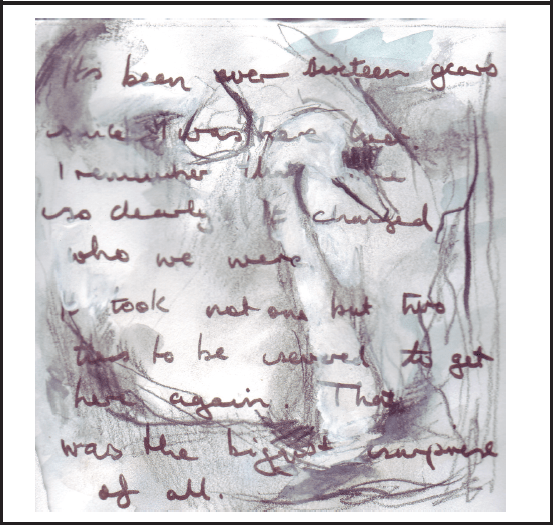 Its been over sixteen years
since I was here last.
I remember that time
so clearly. It changed
who we were
It took not one but two
to be to get
here again. That
was the biggest surprise
of all.